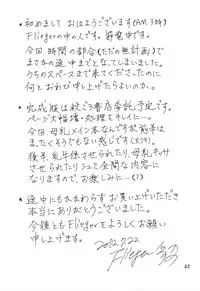 ・初めまして おはようございます(AM 3時)
Fliegerの中の人です。筋竜中です。
今回、時間の都合(ただの無計画)で
まさかの途中までとなってしまいました。
うちのスペースまで来てくださったのに
何とお詫び申し上げたらいいのか…
・完成版は秋ごろ書店委託予定です。
ページ大幅増・処理をキレイに…。
今回 母乳メイン本なんですが
まったくそうでもない感じです(大汗)。
後半 乳牛体させられたり、母乳キッサ
させられたり シュミ全開な内容に
なりますので、お楽しみに…(?)
・途中にもかかわらず お買い上げいただき
本当にありがとうございました。
今後とも Fliegerをよろしくお願い
申し上げます。
2012.7.22
Flieger
62